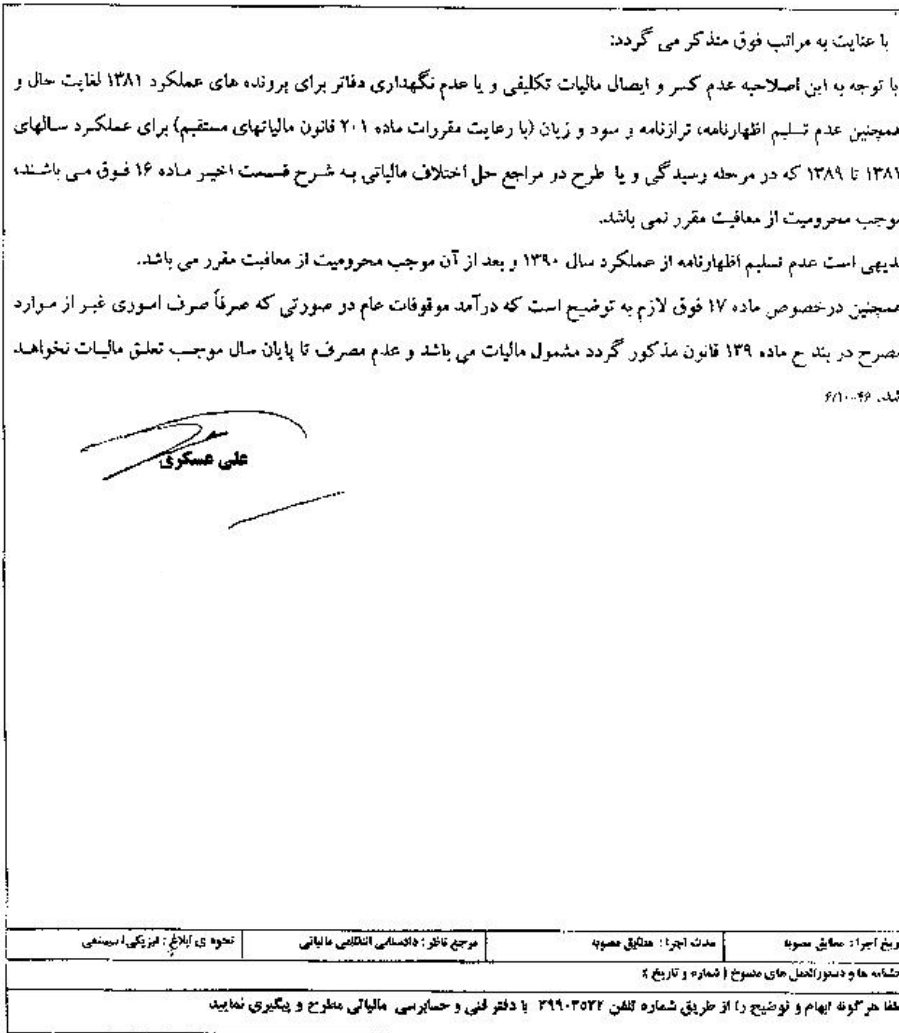 با عنایت به مراتب فوق متذکر می گردد:
با توجه به این اصلاحیه عدم کسر و ایصال مالیات تکلیفی و یا عدم نگهداری دفاتر برای پرونده های عملکرد ۱۳۸۱ لغایت حال و
همچنین عدم تسلیم اظهارنامه، ترازنامه و سود و زیان (با رعایت مقررات ماده ۲۰۱ قانون مالیاتهای مستقیم) برای عملکرد سالهای
۱۳۸۱ تا ۱۳۸۹ که در مرحله رسیدگی و یا طرح در مراجع حل اختلاف مالیاتی به شرح قسمت اخیر ماده ۱۶ فوق می باشند،
موجب محرومیت از معافیت مقرر نمی باشد.
بدیهی است عدم تسلیم اظهارنامه از عملکرد سال ۱۳۹۰ و بعد از آن موجب محرومیت از معافیت مقرر می باشد.
همچنین درخصوص ماده ۱۷ فوق لازم به توضیح است که درآمد موقوفات عام در صورتی که صرفاً صرف اموری غیر از موارد
مصرح در بند ح ماده ۱۳۹ قانون مذکور گردد مشمول مالیات می باشد و عدم مصرف تا پایان سال موجب تعلق مالیات نخواهد
شد. ۶/۱۰-۴۶
علی عسکری
تاریخ اجرا: مطابق مصوبه مدت اجرا: مطابق مصوبه مرجع ناظر: دادستانی انتظامی مالیاتی نحوه ی ابلاغ: فیزیکی/ سیستمی
بخشنامه ها و دستورالعمل های منسوخ (شماره و تاریخ):
لطفا هرگونه ابهام و توضیح را از طریق شماره تلفن ۳۹۹۰۳۵۲۲ با دفتر فنی و حسابرسی مالیاتی مطرح و پیگیری نمایید